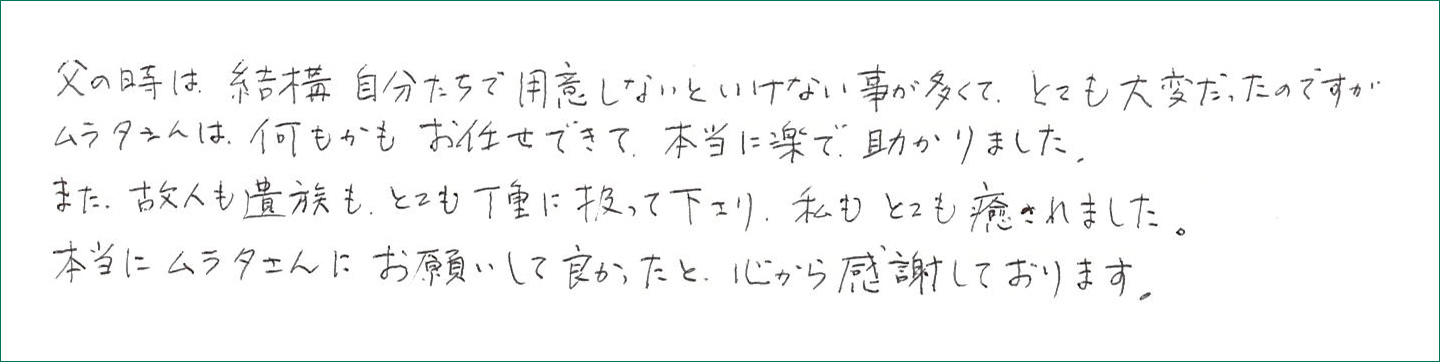 父の時は、結構自分たちで用意しないといけない事が多くて、とても大変だったのですが
ムラタさんは、何もかもお任せできて、本当に楽で、助かりました。
また、故人も遺族も、とても丁重に扱って下さり、私もとても癒されました。
本当にムラタさんにお願いして良かったと、心から感謝しております。